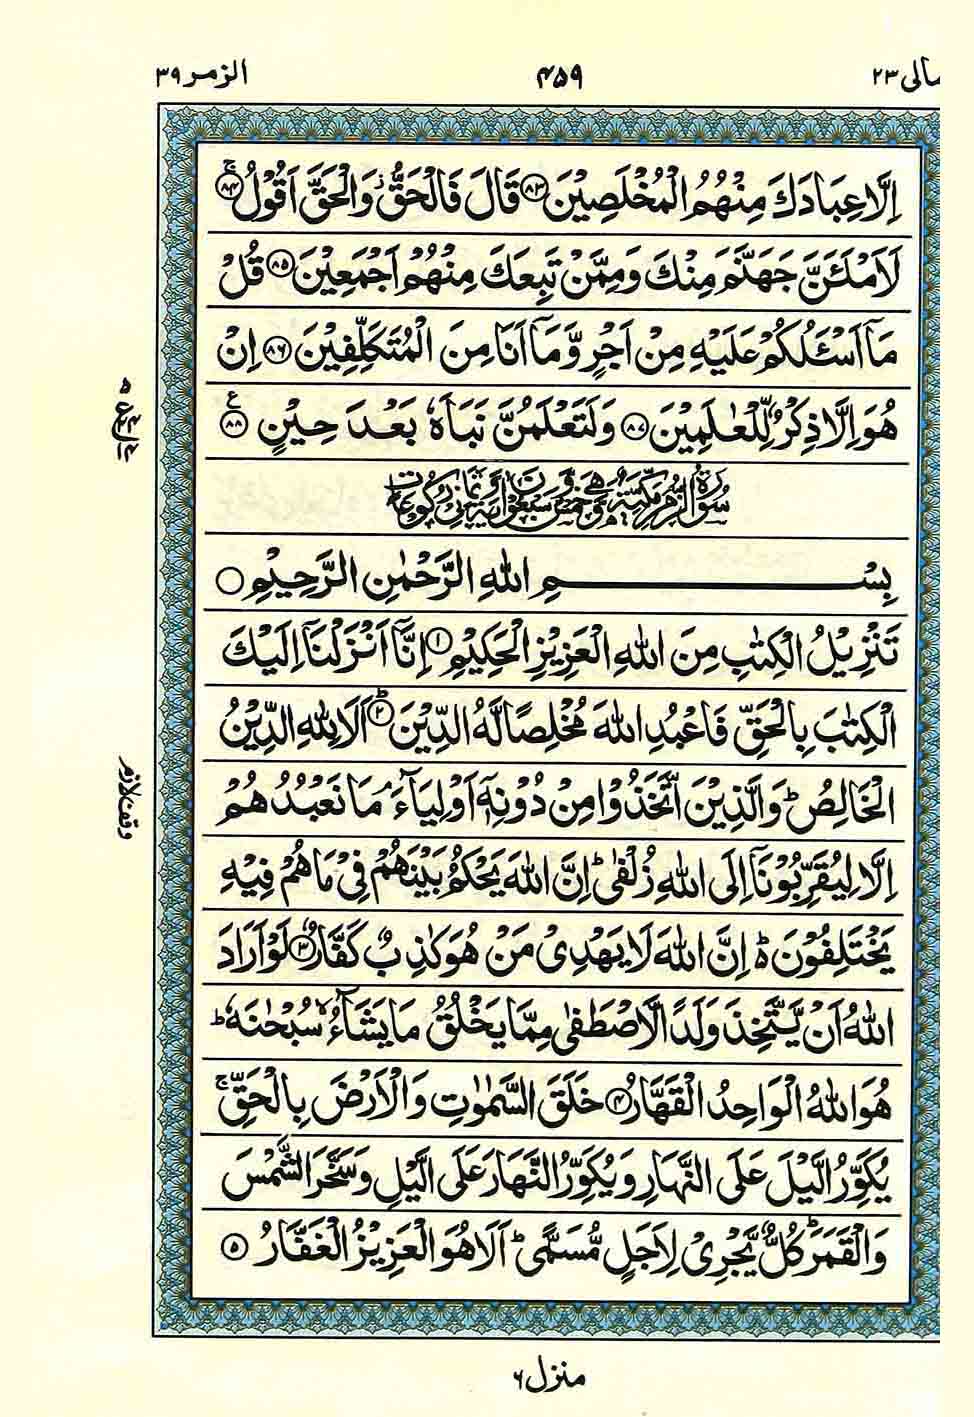 مالی ۲۳
۴۵۹
الزمر ۳۹
اِلَّا عِبَادَكَ مِنْهُمُ الْمُخْلَصِيْنَ ۝۸۳ قَالَ فَالْحَقُّ ؗ وَالْحَقَّ اَقُوْلُ ۝۸۴ ۚ
لَاَمْلَـَٔنَّ جَهَنَّمَ مِنْكَ وَمِمَّنْ تَبِعَكَ مِنْهُمْ اَجْمَعِيْنَ ۝۸۵ قُلْ
مَاۤ اَسْـَٔلُكُمْ عَلَيْهِ مِنْ اَجْرٍ وَّمَاۤ اَنَا مِنَ الْمُتَكَلِّفِيْنَ ۝۸۶ اِنْ
هُوَ اِلَّا ذِكْرٌ لِّلْعٰلَمِيْنَ ۝۸۷ وَلَتَعْلَمُنَّ نَبَاَهٗ بَعْدَ حِيْنٍ ۝۸۸ ع
سُوْرَةُ الزُّمَرِ مَكِّيَّةٌ وَّهِيَ خَمْسٌ وَّسَبْعُوْنَ اٰيَةً وَّثَمَانِيْ رُكُوْعَاتٍ
بِسْمِ اللّٰهِ الرَّحْمٰنِ الرَّحِيْمِ ۝
تَنْزِيْلُ الْكِتٰبِ مِنَ اللّٰهِ الْعَزِيْزِ الْحَكِيْمِ ۝۱ اِنَّاۤ اَنْزَلْنَاۤ اِلَيْكَ
الْكِتٰبَ بِالْحَقِّ فَاعْبُدِ اللّٰهَ مُخْلِصًا لَّهُ الدِّيْنَ ۝۲ ؕ اَلَا لِلّٰهِ الدِّيْنُ
الْخَالِصُ ؕ وَالَّذِيْنَ اتَّخَذُوْا مِنْ دُوْنِهٖۤ اَوْلِيَآءَ ۘ مَا نَعْبُدُهُمْ
اِلَّا لِيُقَرِّبُوْنَاۤ اِلَى اللّٰهِ زُلْفٰى ؕ اِنَّ اللّٰهَ يَحْكُمُ بَيْنَهُمْ فِيْ مَا هُمْ فِيْهِ
يَخْتَلِفُوْنَ ؕ اِنَّ اللّٰهَ لَا يَهْدِيْ مَنْ هُوَ كٰذِبٌ كَفَّارٌ ۝۳ لَوْ اَرَادَ
اللّٰهُ اَنْ يَّتَّخِذَ وَلَدًا لَّاصْطَفٰى مِمَّا يَخْلُقُ مَا يَشَآءُ ۙ سُبْحٰنَهٗ ؕ
هُوَ اللّٰهُ الْوَاحِدُ الْقَهَّارُ ۝۴ خَلَقَ السَّمٰوٰتِ وَالْاَرْضَ بِالْحَقِّ ۚ
يُكَوِّرُ الَّيْلَ عَلَى النَّهَارِ وَيُكَوِّرُ النَّهَارَ عَلَى الَّيْلِ وَسَخَّرَ الشَّمْسَ
وَالْقَمَرَ ؕ كُلٌّ يَّجْرِيْ لِاَجَلٍ مُّسَمًّى ؕ اَلَا هُوَ الْعَزِيْزُ الْغَفَّارُ ۝۵
وقف لازم
منزل ۶